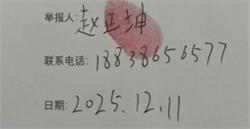 举报人：赵正坤
联系电话：18838656577
日期：2025.12.11